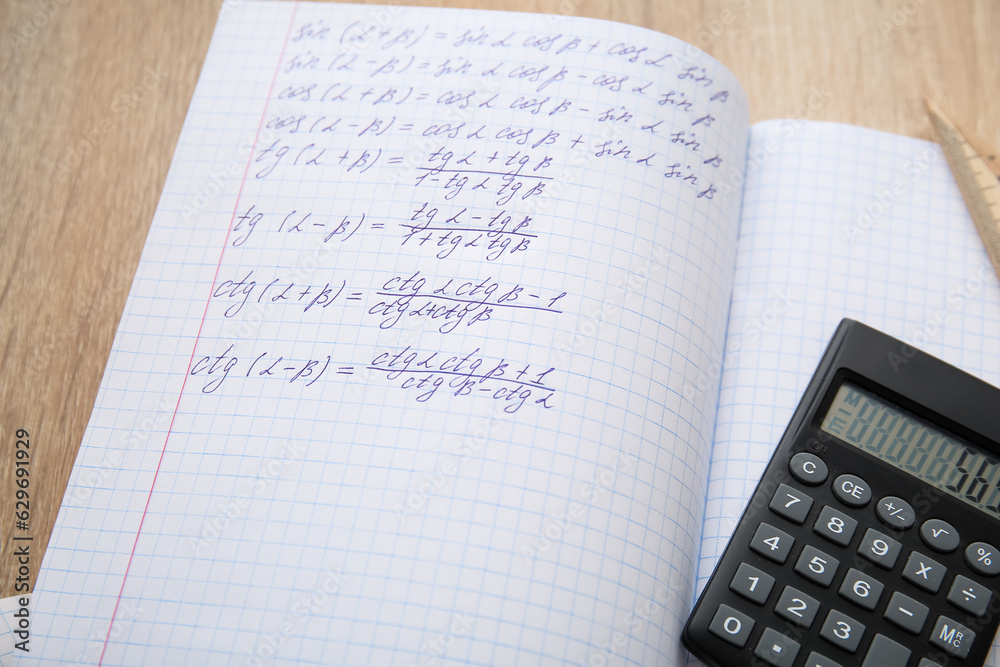 sin (α+β) = sin α cos β + cos α sin β
sin (α-β) = sin α cos β - cos α sin β
cos (α+β) = cos α cos β - sin α sin β
cos (α-β) = cos α cos β + sin α sin β
tg (α+β) = tg α + tg β
1 - tg α tg β
tg (α-β) = tg α - tg β
1 + tg α tg β
ctg (α+β) = ctg α ctg β - 1
ctg α + ctg β
ctg (α-β) = ctg α ctg β + 1
ctg β - ctg α
C CE +/- √ %
7 8 9 X ÷
4 5 6 - MRC
1 2 3
0 .
Adobe Stock | #629691929